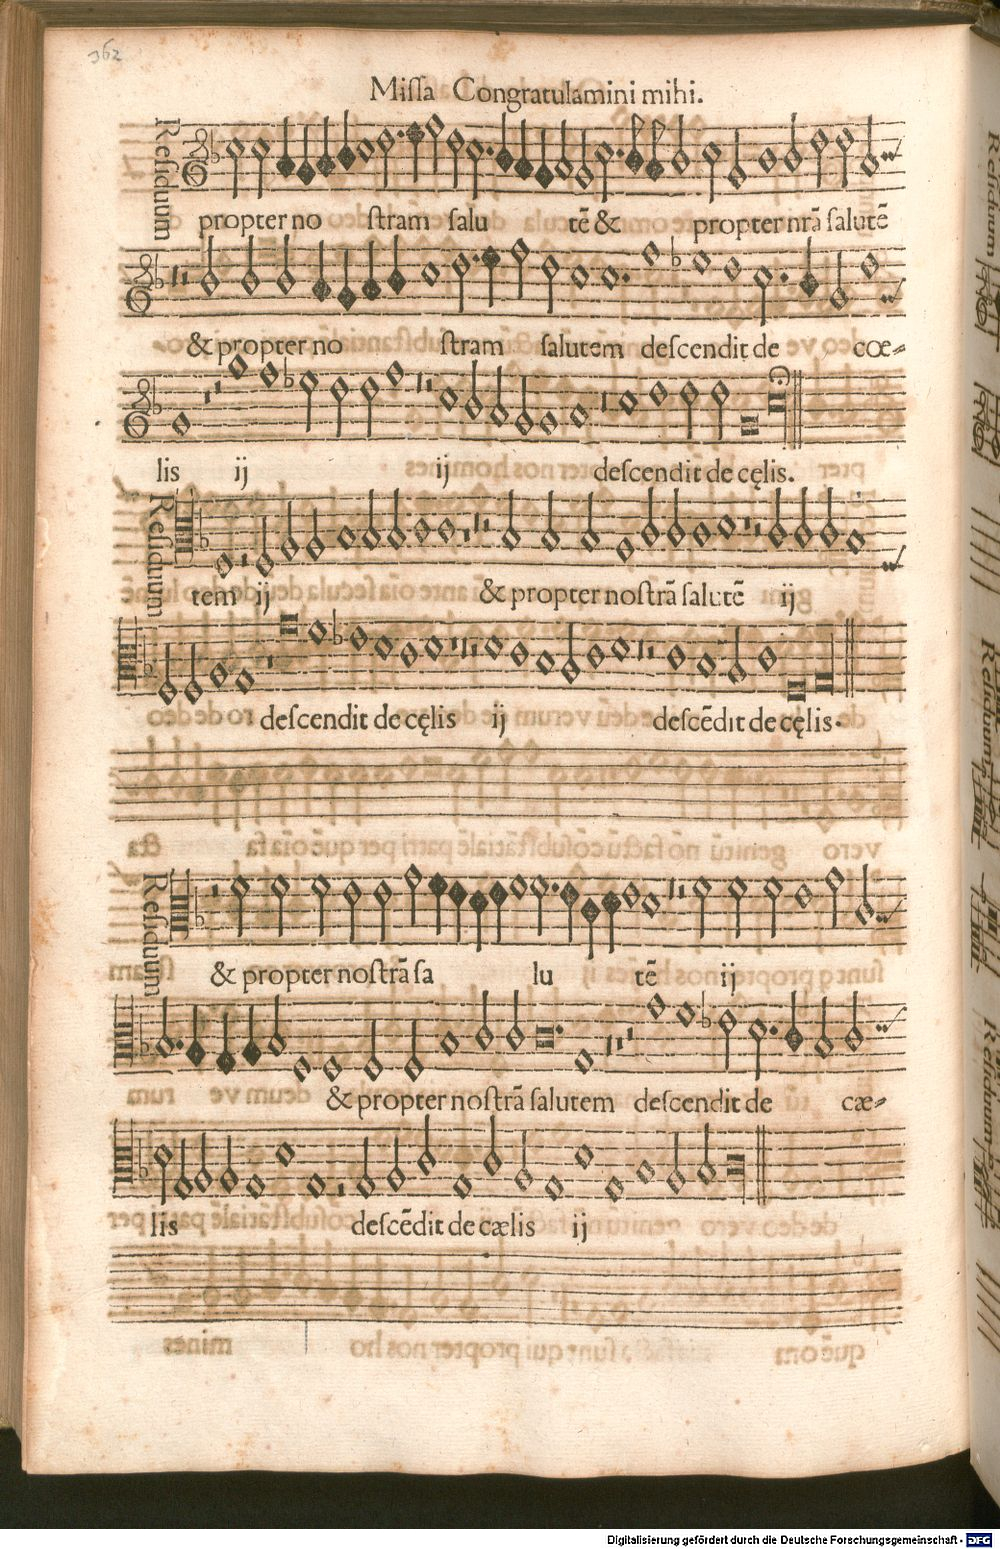 362
Missa Congratulamini mihi.
Residuum
propter no stram salu tē & propter nrā salutē
& propter no stram salutem descendit de cœ=
lis ij ij descendit de cęlis.
Residuum
tem ij & propter nostrā salutē ij
descendit de cęlis ij descēdit de cęlis.
Residuum
& propter nostrā sa lu tē ij
& propter nostrā salutem descendit de cæ=
lis descēdit de cælis ij
Residuum
Residuum
Residuum
Digitalisierung gefördert durch die Deutsche Forschungsgemeinschaft - DFG